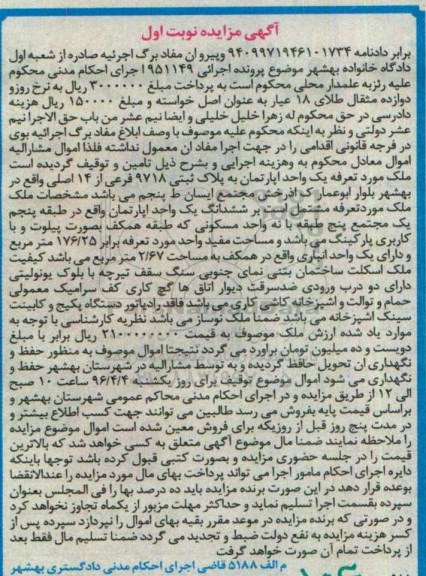 آگهی مزایده نوبت اول
برابر دادنامه ۹۴۰۹۹۷۱۹۴۶۱۰۱۷۳۴ وپیرو آن مفاد برگ اجرئیه صادره از شعبه اول
دادگاه خانواده بهشهر موضوع پرونده اجرائی ۱۹۵۱۱۴۹ اجرای احکام مدنی محکوم
علیه رزبه علمدار محلی محکوم است به پرداخت مبلغ ۳۰۰۰۰۰۰ ریال به نرخ روزو
دوازده مثقال طلای ۱۸ عیار به عنوان اصل خواسته و مبلغ ۱۵۰۰۰۰ ریال هزینه
دادرسی در حق محکوم له زهرا خلیل خلیلی و ایضا نیم عشر من باب حق الاجرا نیم
عشر دولتی و نظر به اینکه محکوم علیه موصوف با وصف ابلاغ مفاد برگ اجرائیه بوی
در فرجه قانونی اقدامی را در جهت اجرا مفاد ان معمول نداشته فلذا اموال مشارالیه
اموال معادل محکوم به وهزینه اجرایی و بشرح ذیل تامین و توقیف گردیده است
ملک مورد تعرفه یک واحد اپارتمان به پلاک ثبتی ۹۷۱۸ فرعی از ۱۴ اصلی واقع در
بهشهر بلوار ابوعمار ک آذرخش مجتمع ایسان ط پنجم می باشد مشخصات ملک
ملک موردتعرفه مشتمل بر ششدانگ یک واحد اپارتمان واقع در طبقه پنجم
یک مجتمع پنج طبقه با نه واحد مسکونی که طبقه همکف بصورت پیلوت و با
کاربری پارکینگ می باشد و مساحت مفید واحد مورد تعرفه برابر ۱۷۶/۲۵ متر مربع
و دارای یک واحد انباری واقع در همکف به مساحت ۲/۶۷ متر مربع می باشد کیفیت
ملک اسکلت ساختمان بتنی نمای جنوبی سنگ سقف تیرچه با بلوک یونولیتی
دارای دو درب ورودی ضدسرقت دیوار اتاق ها گچ کاری کف سرامیک معمولی
حمام و توالت و اشپزخانه کاشی کاری می باشد فاقد رادیاتور دستگاه پکیج و کابینت
سینک اشپزخانه می باشد ضمنا ملک نوساز می باشد نظریه کارشناسی با توجه به
موارد یاد شده ارزش ملک موصوف به قیمت ۲۱۰۰۰۰۰۰۰۰ ریال برابر با مبلغ
دویست و ده میلیون تومان براورد می گردد نتیجتا اموال موصوف به منظور حفظ و
نگهداری ان تحویل حافظ گردیده و به توسط مشارالیه در شهرستان بهشهر حفظ و
نگهداری می شود اموال موضوع توقیف برای روز یکشنبه ۹۶/۴/۴ ساعت ۱۰ صبح
الی ۱۲ از طریق مزایده و در اجرای احکام مدنی محاکم عمومی شهرستان بهشهر و
براساس قیمت پایه بفروش می رسد طالبین می توانند جهت کسب اطلاع بیشتر و
در مدت پنج روز قبل از روزیکه برای فروش معین شده است اموال موضوع مزایده
را ملاحظه نمایند ضمنا مال موضوع آگهی متعلق به کسی خواهد شد که بالاترین
قیمت را در جلسه حضوری مزایده و بصورت کتبی قبول کرده باشد توجها باینکه
دایره اجرای احکام مامور اجرا می تواند پرداخت بهای مال مورد مزایده را عندالاقتضا
بوعده قرار دهد در این صورت برنده مزایده باید ده درصد بها را فی المجلس بعنوان
سپرده بقسمت اجرا تسلیم نماید و حداکثر مهلت مزبور از یکماه تجاوز نخواهد کرد
و در صورتی که برنده مزایده در موعد مقرر بقیه بهای اموال را نپردازد سپرده پس از
کسر هزینه مزایده به نفع دولت ضبط و تجدید می گردد ضمنا تسلیم مال فقط بعد
از پرداخت تمام آن صورت خواهد گرفت
م الف ۵۱۸۸ قاضی اجرای احکام مدنی دادگستری بهشهر